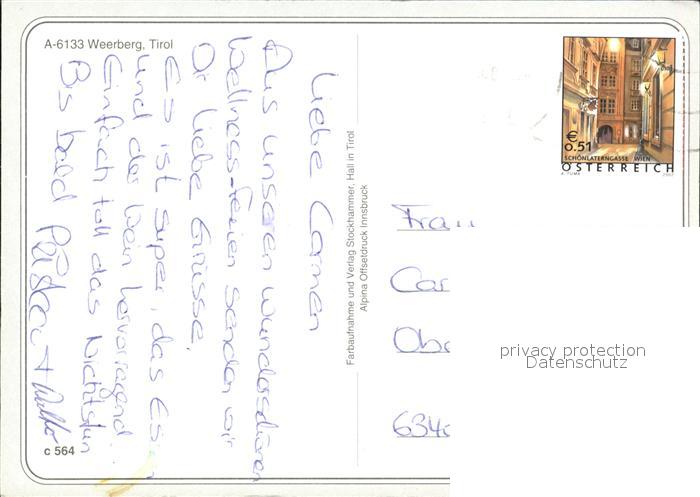 A-6133 Weerberg, Tirol
Liebe Carmen
Aus unseren wunderschönen
Wellness-Ferien senden wir
Dir liebe Grüsse.
Es ist super, das Essen
und der Wein hervorragend.
Einfach toll das Nichtstun
Bis bald
c 564
Farbaufnahme und Verlag Stockhammer, Hall in Tirol
Alpina Offsetdruck Innsbruck
€
0.51
SCHÖNLATERNGASSE WIEN
ÖSTERREICH
Frau
Car
Obe
634
privacy protection
Datenschutz